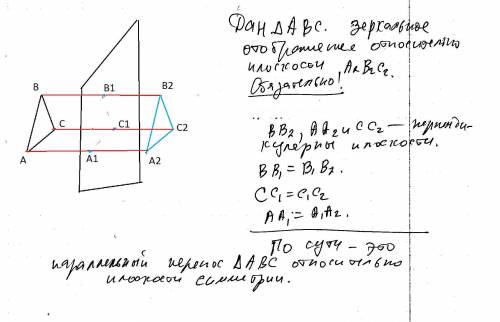 Дан ΔABC. зеркальное
отображение относительно
плоскости A2B2C2.
Обязательно!
B B1 B2
C C1 C2
A A1 A2
BB2, AA2 и CC2 — перпенди-
кулярны плоскости.
BB1 = B1B2.
CC1 = C1C2
AA1 = A1A2.
По сути – это
параллельный перенос ΔABC относительно
плоскости симметрии.